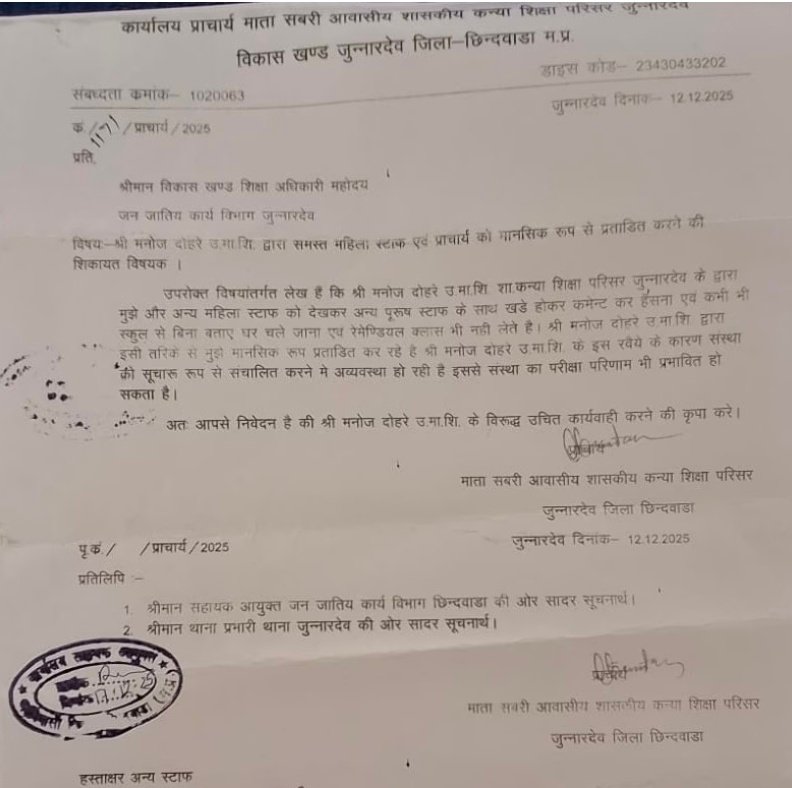 कार्यालय प्राचार्य माता सबरी आवासीय शासकीय कन्या शिक्षा परिसर जुन्नारदेव
विकास खण्ड जुन्नारदेव जिला–छिन्दवाडा म.प्र.
डाइस कोड– 23430433202
संबध्दता कमांक– 1020063
जुन्नारदेव दिनांक– 12.12.2025
क. /1171 /प्राचार्य/2025
प्रति,
श्रीमान विकास खण्ड शिक्षा अधिकारी महोदय
जन जातिय कार्य विभाग जुन्नारदेव
विषय:–श्री मनोज दोहरे उ.मा.शि. द्वारा समस्त महिला स्टाक एवं प्राचार्य को मानसिक रूप से प्रताडित करने की
शिकायत विषयक ।
उपरोक्त विषयांतर्गत लेख है कि श्री मनोज दोहरे उ.मा.शि. शा.कन्या शिक्षा परिसर जुन्नारदेव के द्वारा
मुझे और अन्य महिला स्टाफ को देखकर अन्य पूरूष स्टाफ के साथ खडे होकर कमेन्ट कर हँसना एवं कभी भी
स्कुल से बिना बताए घर चले जाना एवं रेमेण्डियल क्लास भी नही लेते है। श्री मनोज दोहरे उ.मा.शि. द्वारा
इसी तरिके से मुझे मानसिक रूप प्रताडित कर रहे है श्री मनोज दोहरे उ.मा.शि. के इस रवैये के कारण संस्था
की सूचारू रूप से संचालित करने मे अव्यवस्था हो रही है इससे संस्था का परीक्षा परिणाम भी प्रभावित हो
सकता है।
अतः आपसे निवेदन है की श्री मनोज दोहरे उ.मा.शि. के विरूद्ध उचित कार्यवाही करने की कृपा करे।
प्राचार्य
माता सबरी आवासीय शासकीय कन्या शिक्षा परिसर
जुन्नारदेव जिला छिन्दवाडा
पृ.कं. / /प्राचार्य/2025
जुन्नारदेव दिनांक– 12.12.2025
प्रतिलिपि :–
1. श्रीमान सहायक आयुक्त जन जातिय कार्य विभाग छिन्दवाडा की ओर सादर सूचनार्थ।
2. श्रीमान थाना प्रभारी थाना जुन्नारदेव की ओर सादर सूचनार्थ।
कार्यालय सहायक आयुक्त
प्राचार्य
माता सबरी आवासीय शासकीय कन्या शिक्षा परिसर
जुन्नारदेव जिला छिन्दवाडा
हस्ताक्षर अन्य स्टाफ